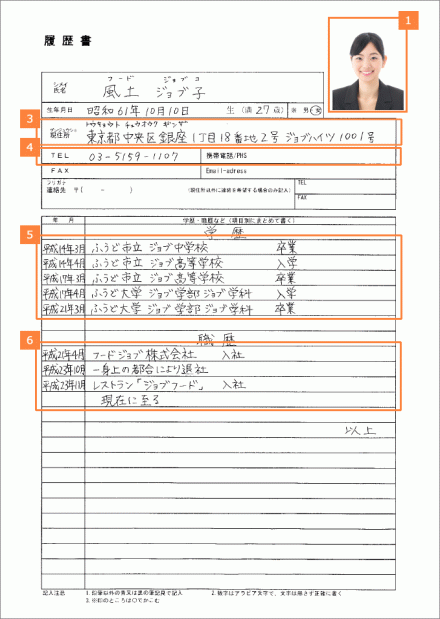 1
履歴書
シメイ 氏名 フード ジョブコ
風土 ジョブ子
生年月日 昭和61年10月10日 生 (満27歳) ※ 男・女
3
現住所 トウキョウト チュウオウク ギンザ
東京都中央区銀座1丁目18番地2号 ジョブハイツ1001号
4
TEL 03-5159-1107 携帯電話/PHS
FAX Email-adress
フリガナ TEL
連絡先 〒( - ) (現住所以外に連絡を希望する場合のみ記入)
FAX
年 月 学歴・職歴など (項目別にまとめて書く)
学歴
5
平成14年3月 ふうど市立 ジョブ中学校 卒業
平成14年4月 ふうど市立 ジョブ高等学校 入学
平成17年3月 ふうど市立 ジョブ高等学校 卒業
平成17年4月 ふうど大学 ジョブ学部 ジョブ学科 入学
平成21年3月 ふうど大学 ジョブ学部 ジョブ学科 卒業
職歴
6
平成21年4月 フードジョブ株式会社 入社
平成23年10月 一身上の都合により退社
平成23年11月 レストラン「ジョブフード」 入社
現在に至る
以上
記入注意 1.鉛筆以外の青又は黒の筆記具で記入 2.数字はアラビア文字で、文字は崩さず正確に書く
3.※印のところは○でかこむ